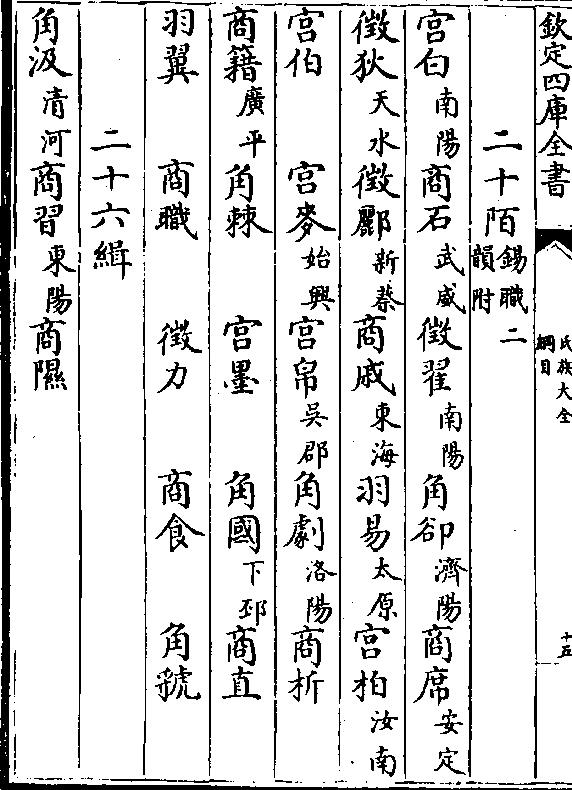 欽定四庫全書
氏族大全
綱目
十五
二十陌錫職二韻附
宫白南陽商石武威徵翟南陽角郤濟陽商席安定
徵狄天水徵酈新蔡商戚東海羽易太原宫柏汝南
宫伯宫麥始興宫帛吳郡角劇洛陽商析
商籍廣平角棘宫墨角國下邳商直
羽翼商職徵力商食角虢
二十六緝
角汲清河商習東陽商隰